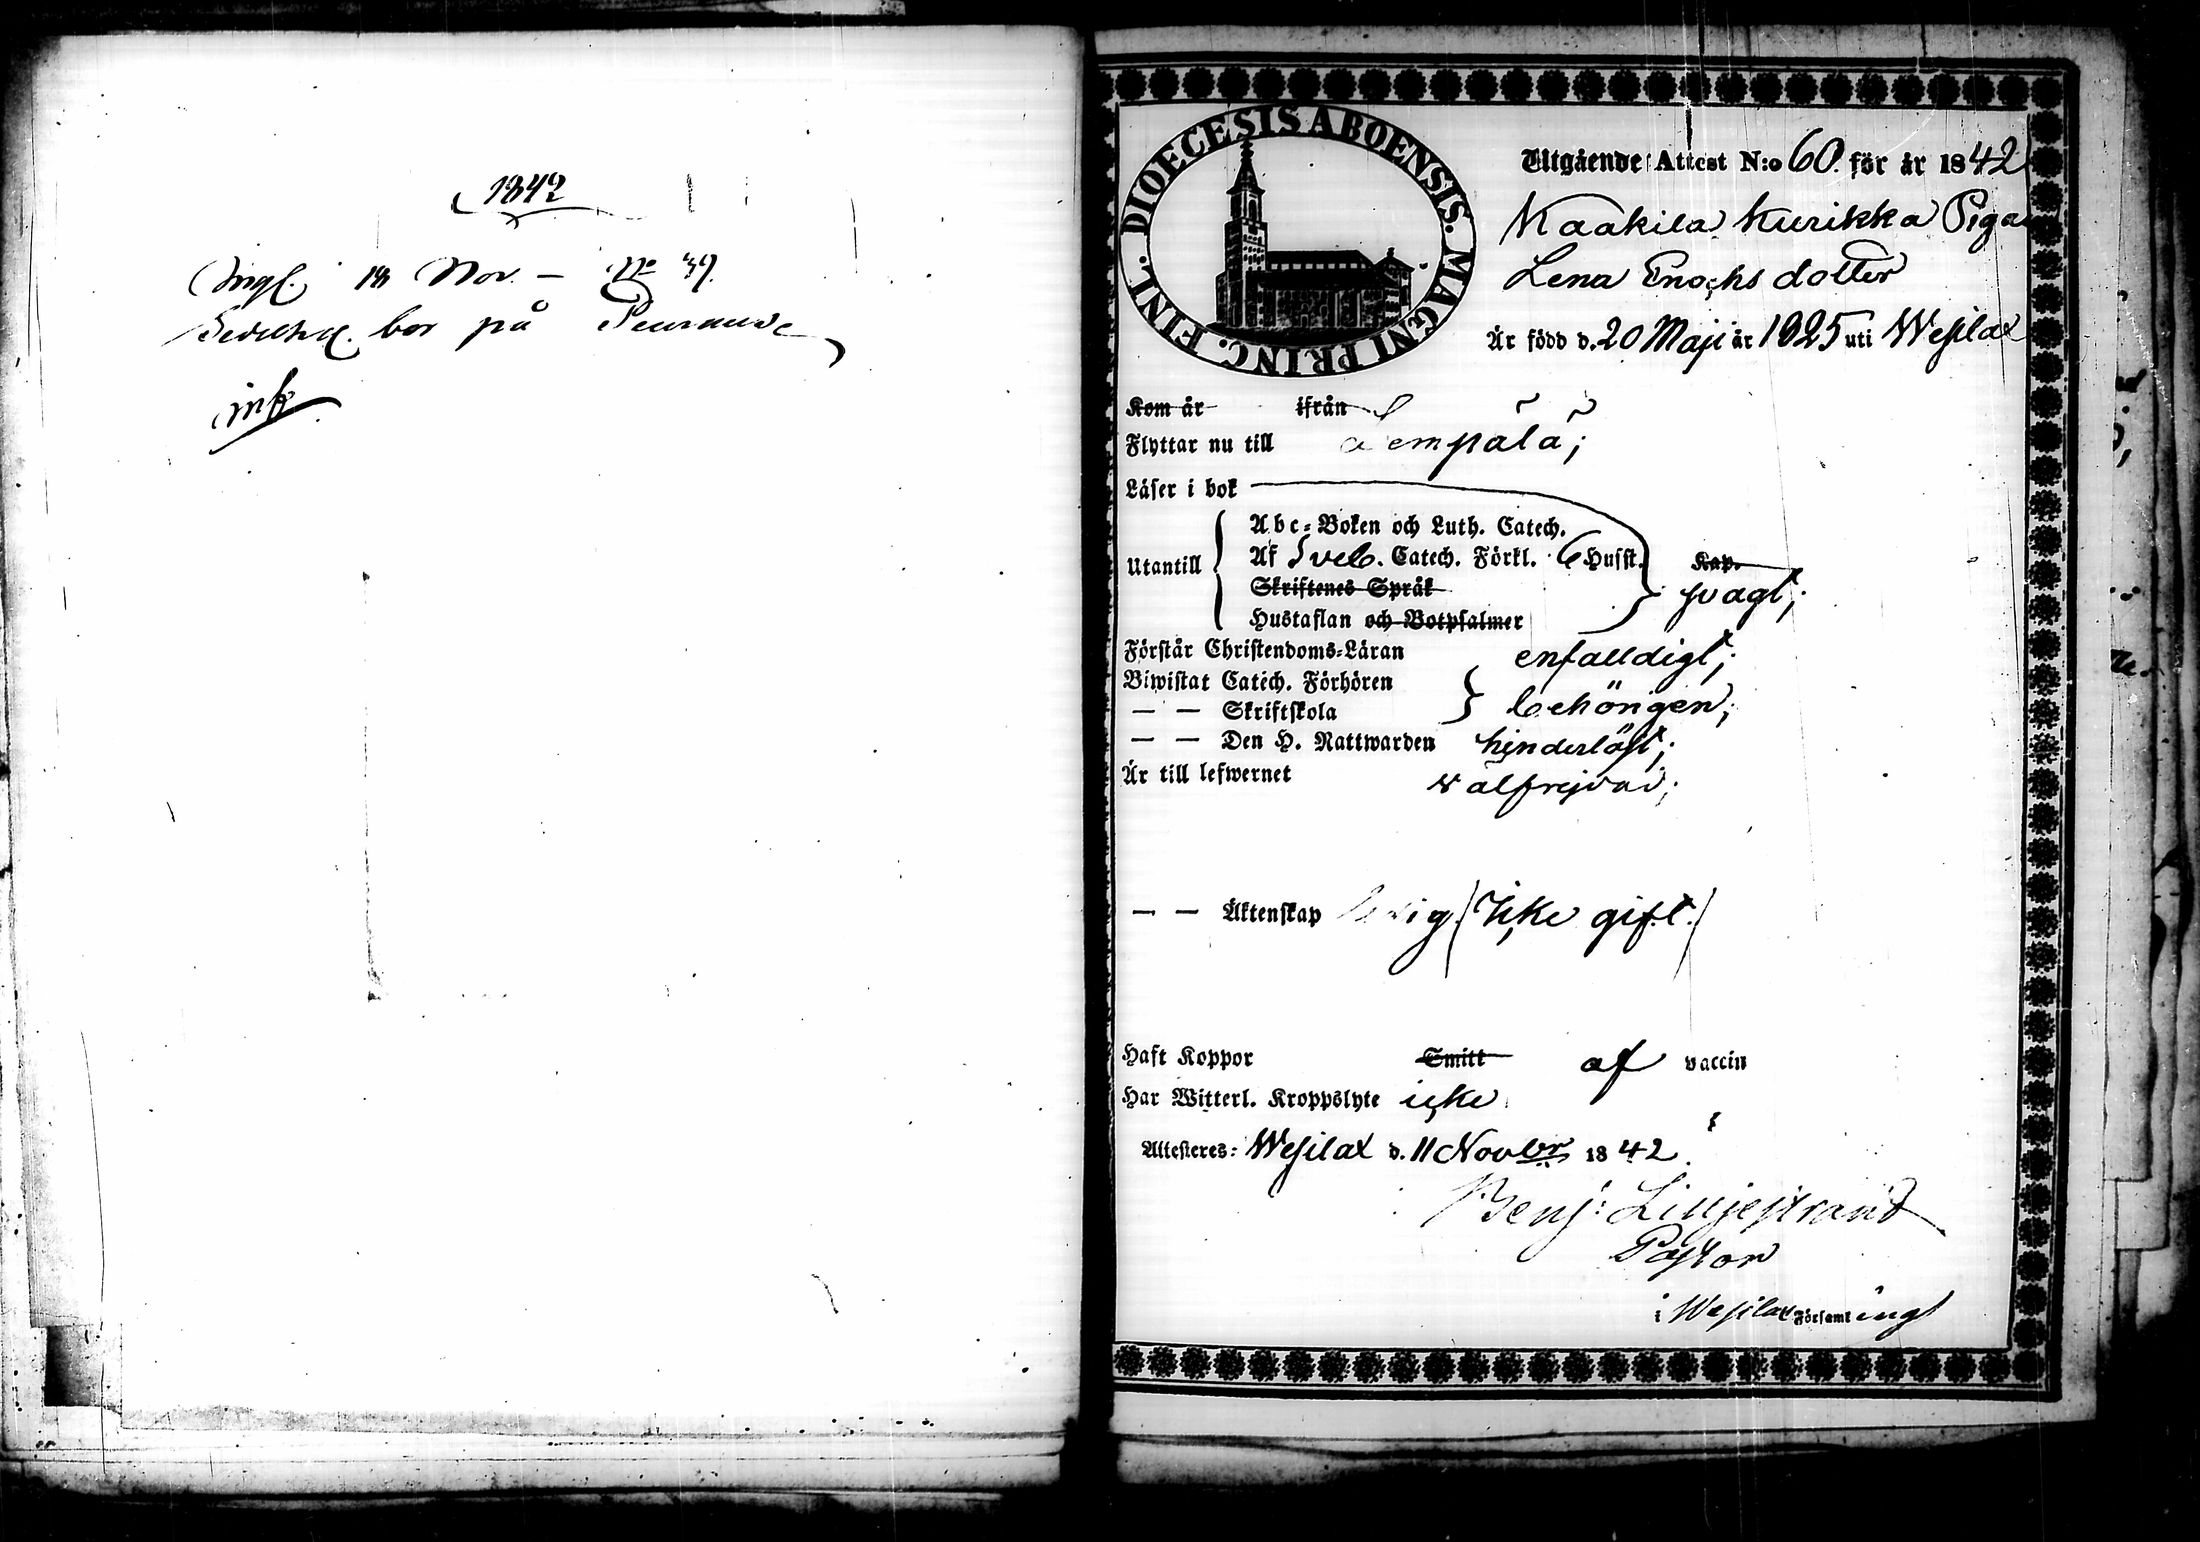 1842
Ingl. 18 Nov. – No 39.
bor på
DIOECESIS ABOENSIS. MAGNI PRINC. FINL.
Utgående Attest N:o 60. för år 1842
Kaakila Kurikka Piga
Lena Enochsdotter
Är född d. 20 Maji år 1825 uti Wesilax
Kom år ifrån
Flyttar nu till Lempälä;
Läser i bok
Abc-Boken och Luth. Catech.
Utantill Af Sveb. Catech. Förkl. 6 Husst. Kap.
Skriftenes Språk svagt;
Hustaflan och Botpsalmer
Förstår Christendoms-Läran enfalldigt;
Biwistat Catech. Förhören
— — Skriftskola behörigen;
— — Den H. Nattwarden hinderlöst;
Är till lefwernet välfrejdad;
— — Äktenskap ledig (icke gift.)
Haft Koppor Smitt af vaccin
Har Witterl. Kroppslyte icke
Attesteres: Wesilax d. 11 Novbr 1842
Benj: Lilljestrand
Pastor
i Wesilax Församling